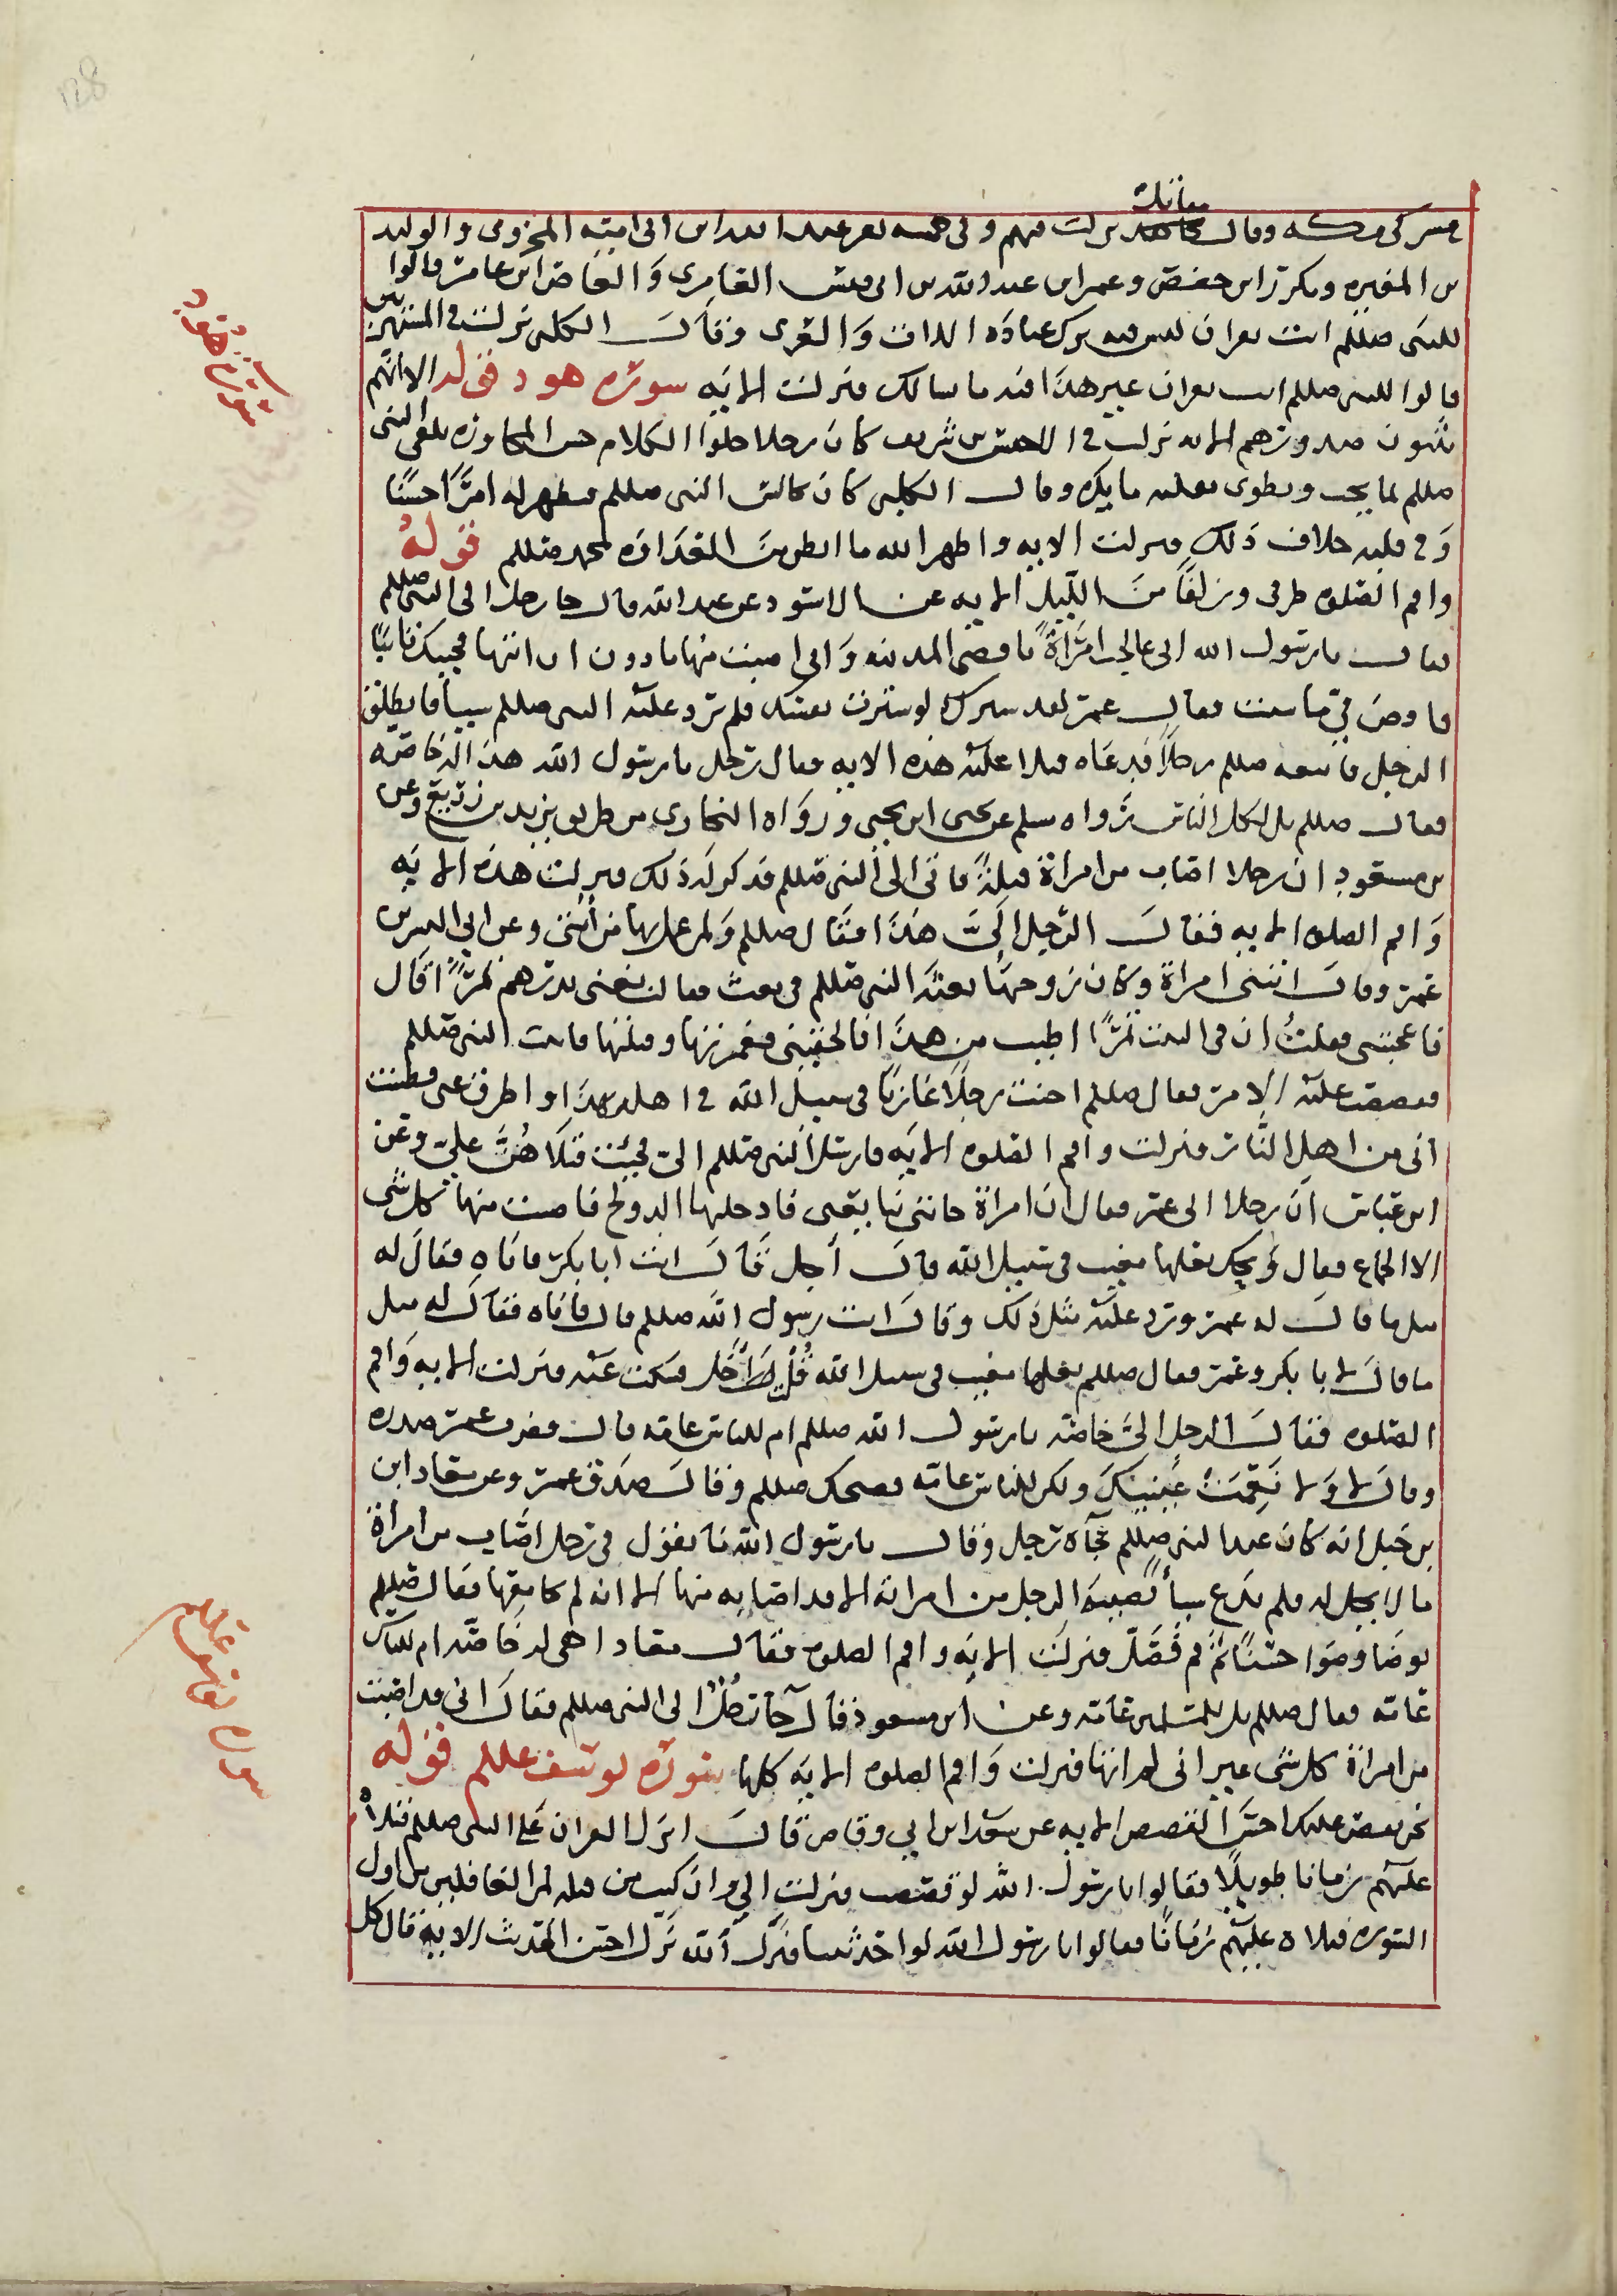 مقاتل
مشركى مكه وقال مجاهد نزلت فيهم وفى خمسه نفر عبد الله ابن ابى اميه المخزومى والوليد
بن المغيره ومكرز ابن حفص وعمر ابن عبد الله بن ابى قيس العامرى والعاص ابن عامر قالوا
للنبى صللم ائت بقران ليس فيه ترك عباده اللات والعزى وقال الكلبى نزلت فى المستهزين
قالوا للنبى صللم ائت بقران غير هذا فيه ما نسالك فنزلت الايه سورة هود قوله الا انهم
يثنون صدورهم الايه نزلت فى الاخنس بن شريق كان رجلا حلوا الكلام حسن المجاوزه يلقى النبى
صللم بما يحب ويطوى بقلبه ما يكره وقال الكلبى كان يجالس النبى صللم فيظهر له امرًا حسنًا
وفى قلبه خلاف ذلك فنزلت الايه واظهر الله ما ابطن من العداوه لمحمد صللم قوله
واقم الصلوه طرفى وزلفًا من الليل الايه عن الاسود عن عبد الله قال جا رجل الى النبى صللم
فقال يا رسول الله انى عالجت امراة باقصى المدينه وانى اصبت منها ما دون ان اتيها فجيتك تايبًا
فاقض فى ما شئت فقال عمر لقد سترك لو سترت نفسك فلم يرد عليه النبى صللم شيا فانطلق
الرجل فاتبعه صللم رجلا فدعاه فتلا عليه هذه الايه فقال رجل يا رسول الله هذا له خاصه
فقال صللم بل لكل الناس رواه مسلم عن يحيى ابن يحيى ورواه البخارى من طريق يزيد بن زريع وعن
بن مسعود ان رجلا اصاب من امراة قبلة فاتى الى النبى صللم فذكر له ذلك فنزلت هذه الايه
واقم الصلوه الايه فقال الرجل الى هذا فقال صللم ولمن عمل بها من امتى وعن ابى اليسر بن
عمرو قال اتتنى امراة وكان زوجها بعثه النبى صللم فى بعث فقالت بعنى بدرهم تمرًا قال
فاعجبتنى فقلت ان فى البيت تمرًا اطيب من هذا فالحقينى فغمزتها وقبلتها فاتيت النبى صللم
فقصصت عليه الامر فقال صللم اخنت رجلا غازيًا فى سبيل الله فى اهله بهذا واطرق عنى فظننت
انى من اهل النار فنزلت واقم الصلوه الايه فارسل النبى صللم الى فجئت فتلاهن على وعن
ابن عباس ان رجلا اتى عمر فقال ان امراة جاتنى تبايعنى فادخلتها الدولج فاصبت منها كل شى
الا الجماع فقال ويحك بعلها مغيب فى سبيل الله قال أجل قال ائت ابا بكر فاتاه فقال له
مثل ما قال له عمر ورد عليه مثل ذلك وقال ائت رسول الله صللم قال فاتاه فقال له مثل
ما قال لابا بكر وعمر فقال صللم بعلها مغيب فى سبيل الله فسكت عنه فنزلت الايه واقم
الصلوه فقال الرجل الى خاصه يا رسول الله صللم ام للناس عامه قال فضرب عمر صدره
وقال لا ولا نعمت عينيك ولكن للناس عامه فضحك صللم وقال صدق عمر وعن معاد ابن
بن جبل انه كان عند النبى صللم فجآه رجل وقال يا رسول الله ما تقول فى رجل اصاب من امراة
ما لا يحل له فلم يدع شيأ يصيبه الرجل من امراته الا قد اصابه منها الا انه لم يجامعها فقال صللم
توضا وضوا حسنًا ثم قم فصل فنزلت الايه واقم الصلوه فقال معاد اهى له خاصه ام للناس
عامه فقال صللم بل للمسلمين عامه وعن ابن مسعود قال جآ رجل الى النبى صللم فقال انى قد اصبت
من امراة كل شى غير انى لم اتها فنزلت واقم الصلوه الايه كلها سورة يوسف عللم قوله
نحن نقص عليك احسن القصص الايه عن سعد ابن ابى وقاص قال انزل القران على النبى صللم فتلاه
عليهم زمانا طويلًا فقالوا يا رسول الله لو قصصت فنزلت الى وان كنت من قبله لمن الغافلين من اول
السوره فتلاه عليهم زمانًا فقالوا يا رسول الله لو احدثتنا فنزل الله نزل احسن الحديث الايه قال كل
سورة هود
سورة يوسف عللم
128